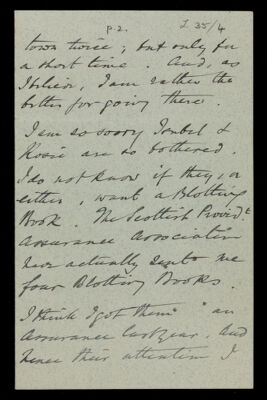 p.2.
L 35/4
town twice; but only for
a short time. And, as
I believe, I am rather the
better for going there.
I am so sorry Isabel &
Rosie are so bothered.
I do not know if they, or
either, want a Blotting
Book. The Scottish Provid.t
Assurance Association
have actually sent me
four Blotting Books.
I think I got them " an
Assurance last year. And
hence their attention I